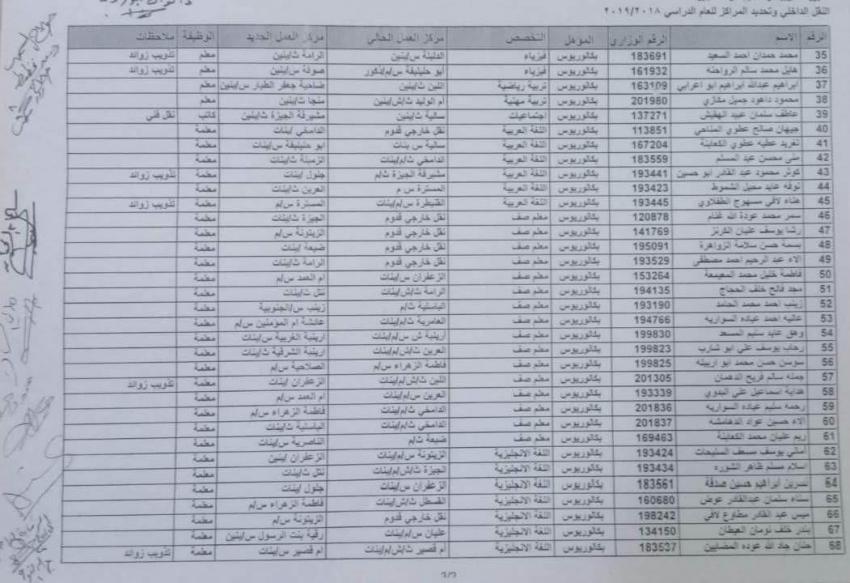 النقل الداخلي وتحديد المراكز للعام الدراسي ٢٠١٩/٢٠١٨
الرقم الاسم الرقم الوزاري المؤهل التخصص مركز العمل الحالي مركز العمل الجديد الوظيفة ملاحظات
35 محمد حمدان احمد السعيد 183691 بكالوريوس فيزياء س/بنين الرامة ث/بنين معلم تذويب زوائد
36 هايل محمد سالم الرواحنه 161932 بكالوريوس فيزياء ابو حليليفة س/م/ذكور صوفة س/بنين معلم تذويب زوائد
37 ابراهيم عبدالله ابراهيم ابو اعرابي 163109 بكالوريوس تربية رياضية اللبن ث/بنين ضاحية جعفر الطيار س/بنين معلم
38 محمود داهود جميل 201980 بكالوريوس تربية مهنية ام الوليد ث/ش/بنين منجا ث/بنين معلم
39 عاطف سلمان عبيد الهقيش 137271 بكالوريوس اجتماعيات سالية ث/بنين مشيرفة الجيزة ث/بنين كاتب نقل فني
40 جيهان صالح عطوي 113851 بكالوريوس اللغة العربية نقل خارجي قدوم الدامخي س/بنات معلمة
41 تغريد عطيه عطوي الكعابنة 167204 بكالوريوس اللغة العربية سالية س بنات ابو حليليفة س/بنات معلمة
42 منى محسن عبد المسلم 183559 بكالوريوس اللغة العربية الدامخي ث/م/بنات ث/بنات معلمة
43 كوثر محمود عبد القادر ابو حسين 193441 بكالوريوس اللغة العربية مشيرفة الجيزة ث/م جلول /بنات معلمة تذويب زوائد
44 نوفه عايد محيل الشموط 193423 بكالوريوس اللغة العربية المسترة س م العرين ث/بنات معلمة
45 هناء لافي 193445 بكالوريوس اللغة العربية القنيطرة س/م/بنات المسترة س/م معلمة تذويب زوائد
46 سمر محمد عودة الله غنام 120878 بكالوريوس معلم صف نقل خارجي قدوم الجيزة ث/بنات معلمة
47 رشا يوسف عليان الكرنز 141769 بكالوريوس معلم صف نقل خارجي قدوم الزيتونة س/م معلمة
48 بسمة حسن سلامة الزواهرة 195091 بكالوريوس معلم صف نقل خارجي قدوم ضبعة /بنات معلمة
49 الاء عبد الرحيم احمد مصطفى 193529 بكالوريوس معلم صف نقل خارجي قدوم الرامة ث/بنات معلمة
50 فاطمة خليل محمد 153264 بكالوريوس معلم صف الزعفران س/بنات ام العمد س/م معلمة
51 مجد فالح خلف الحجاج 194135 بكالوريوس معلم صف الرامة ث/ش/بنات نتل ث/بنات معلمة
52 زينب احمد محمد الحامد 193190 بكالوريوس معلم صف الياسلية ث/م زينب س/الجنوبية معلمة
53 عاليه احمد عباده السواريه 194766 بكالوريوس معلم صف العامرية ث/م/بنات عائشة ام المؤمنين س/م معلمة
54 وفق عايد سليم المسعد 199830 بكالوريوس معلم صف ارينبة ش س/م/بنات ارينبة الغربية س/بنات معلمة
55 رحاب يوسف علي ابو شارب 199823 بكالوريوس معلم صف العرين ث/ش/م/بنات ارينبة الشرقية ث/بنات معلمة
56 سوسن حسن محمد ابو اربيله 199825 بكالوريوس معلم صف فاطمة الزهراء س/م الصلاحية س/م معلمة
57 جمله سالم فريح الدهمان 201305 بكالوريوس معلم صف اللبن ث/ش/م/بنات الزعفران /بنات معلمة تذويب زوائد
58 هداية اسماعيل علي البدوي 193339 بكالوريوس معلم صف العرين س/م/بنات ام العمد س/م معلمة
59 رحمه سليم عباده السواريه 201836 بكالوريوس معلم صف الدامخي ث/م/بنات فاطمة الزهراء س/م معلمة
60 الاء حسين عواد الدهامشه 201837 بكالوريوس معلم صف الدامخي ث/م/بنات ث/بنات معلمة
61 ريم عليان محمد الكعابنة 169463 بكالوريوس معلم صف ضبعة ث/م الناصرية س/بنات معلمة
62 أماني يوسف مسعف السليحات 193424 بكالوريوس اللغة الانجليزية الزيتونة س/م/بنات الزعفران /بنين معلمة
63 اسلام مسلم ظاهر الشوره 193434 بكالوريوس اللغة الانجليزية الجيزة ث/ش/بنات نتل ث/بنات معلمة
64 نسرين ابراهيم حسين صدقة 183561 بكالوريوس اللغة الانجليزية الزعفران س/بنات جلول /بنات معلمة
65 سناء سلمان عبدالقادر عوض 160680 بكالوريوس اللغة الانجليزية القسطل ث/ش/بنات فاطمة الزهراء س/م معلمة
66 ميس عبد القادر مطاوع لافي 198242 بكالوريوس اللغة الانجليزية نقل خارجي قدوم الزيتونة س/م معلمة
67 بندر خلف نومان العيطان 134150 بكالوريوس اللغة الانجليزية عليان س/م/بنات رقية بنت الرسول س/بنات معلمة
68 حنان جاد الله عوده المضايين 183537 بكالوريوس اللغة الانجليزية ام قصير ث/ش/م/بنات ام قصير س/بنات معلمة تذويب زوائد